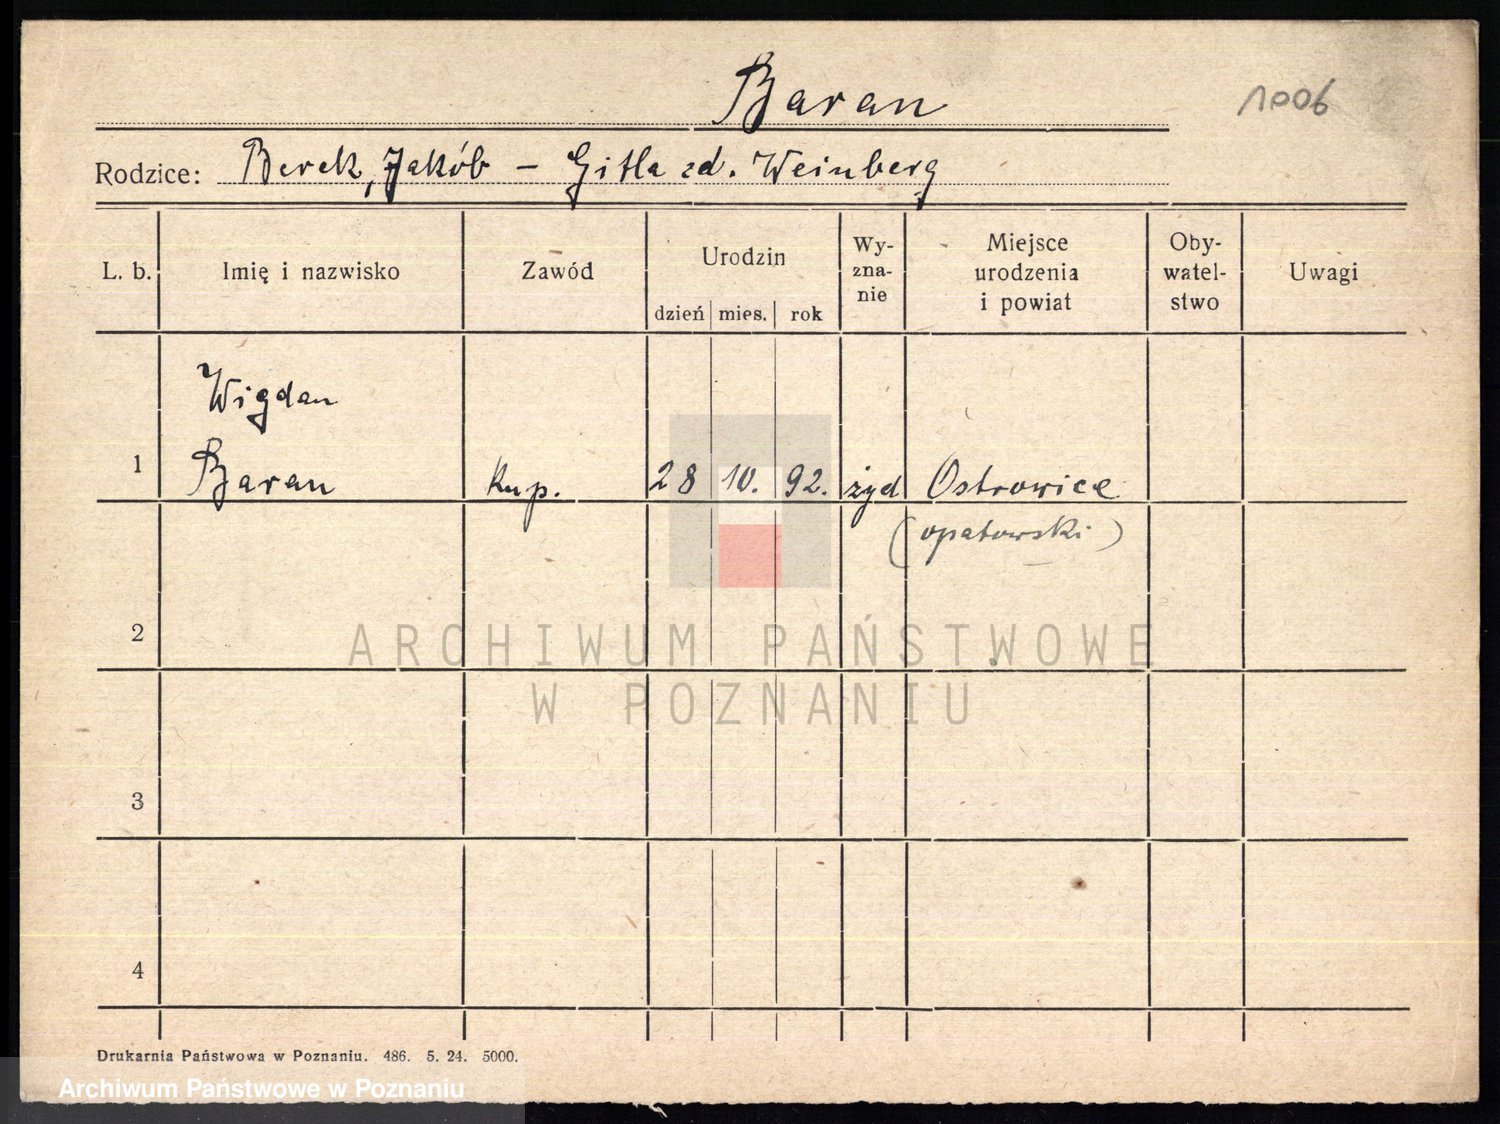 Baran 1006
Rodzice: Berek, Jakób – Gitla zd. Weinberg
L. b. Imię i nazwisko Zawód Urodzin Wy- zna- nie Miejsce urodzenia i powiat Oby- watel- stwo Uwagi
dzień mies. rok
Wigdan
1 Baran kup. 28 10. 92. żyd Ostrowice
(opatowski)
2
ARCHIWUM PAŃSTWOWE
W POZNANIU
3
4
Drukarnia Państwowa w Poznaniu. 486. 5. 24. 5000.
Archiwum Państwowe w Poznaniu